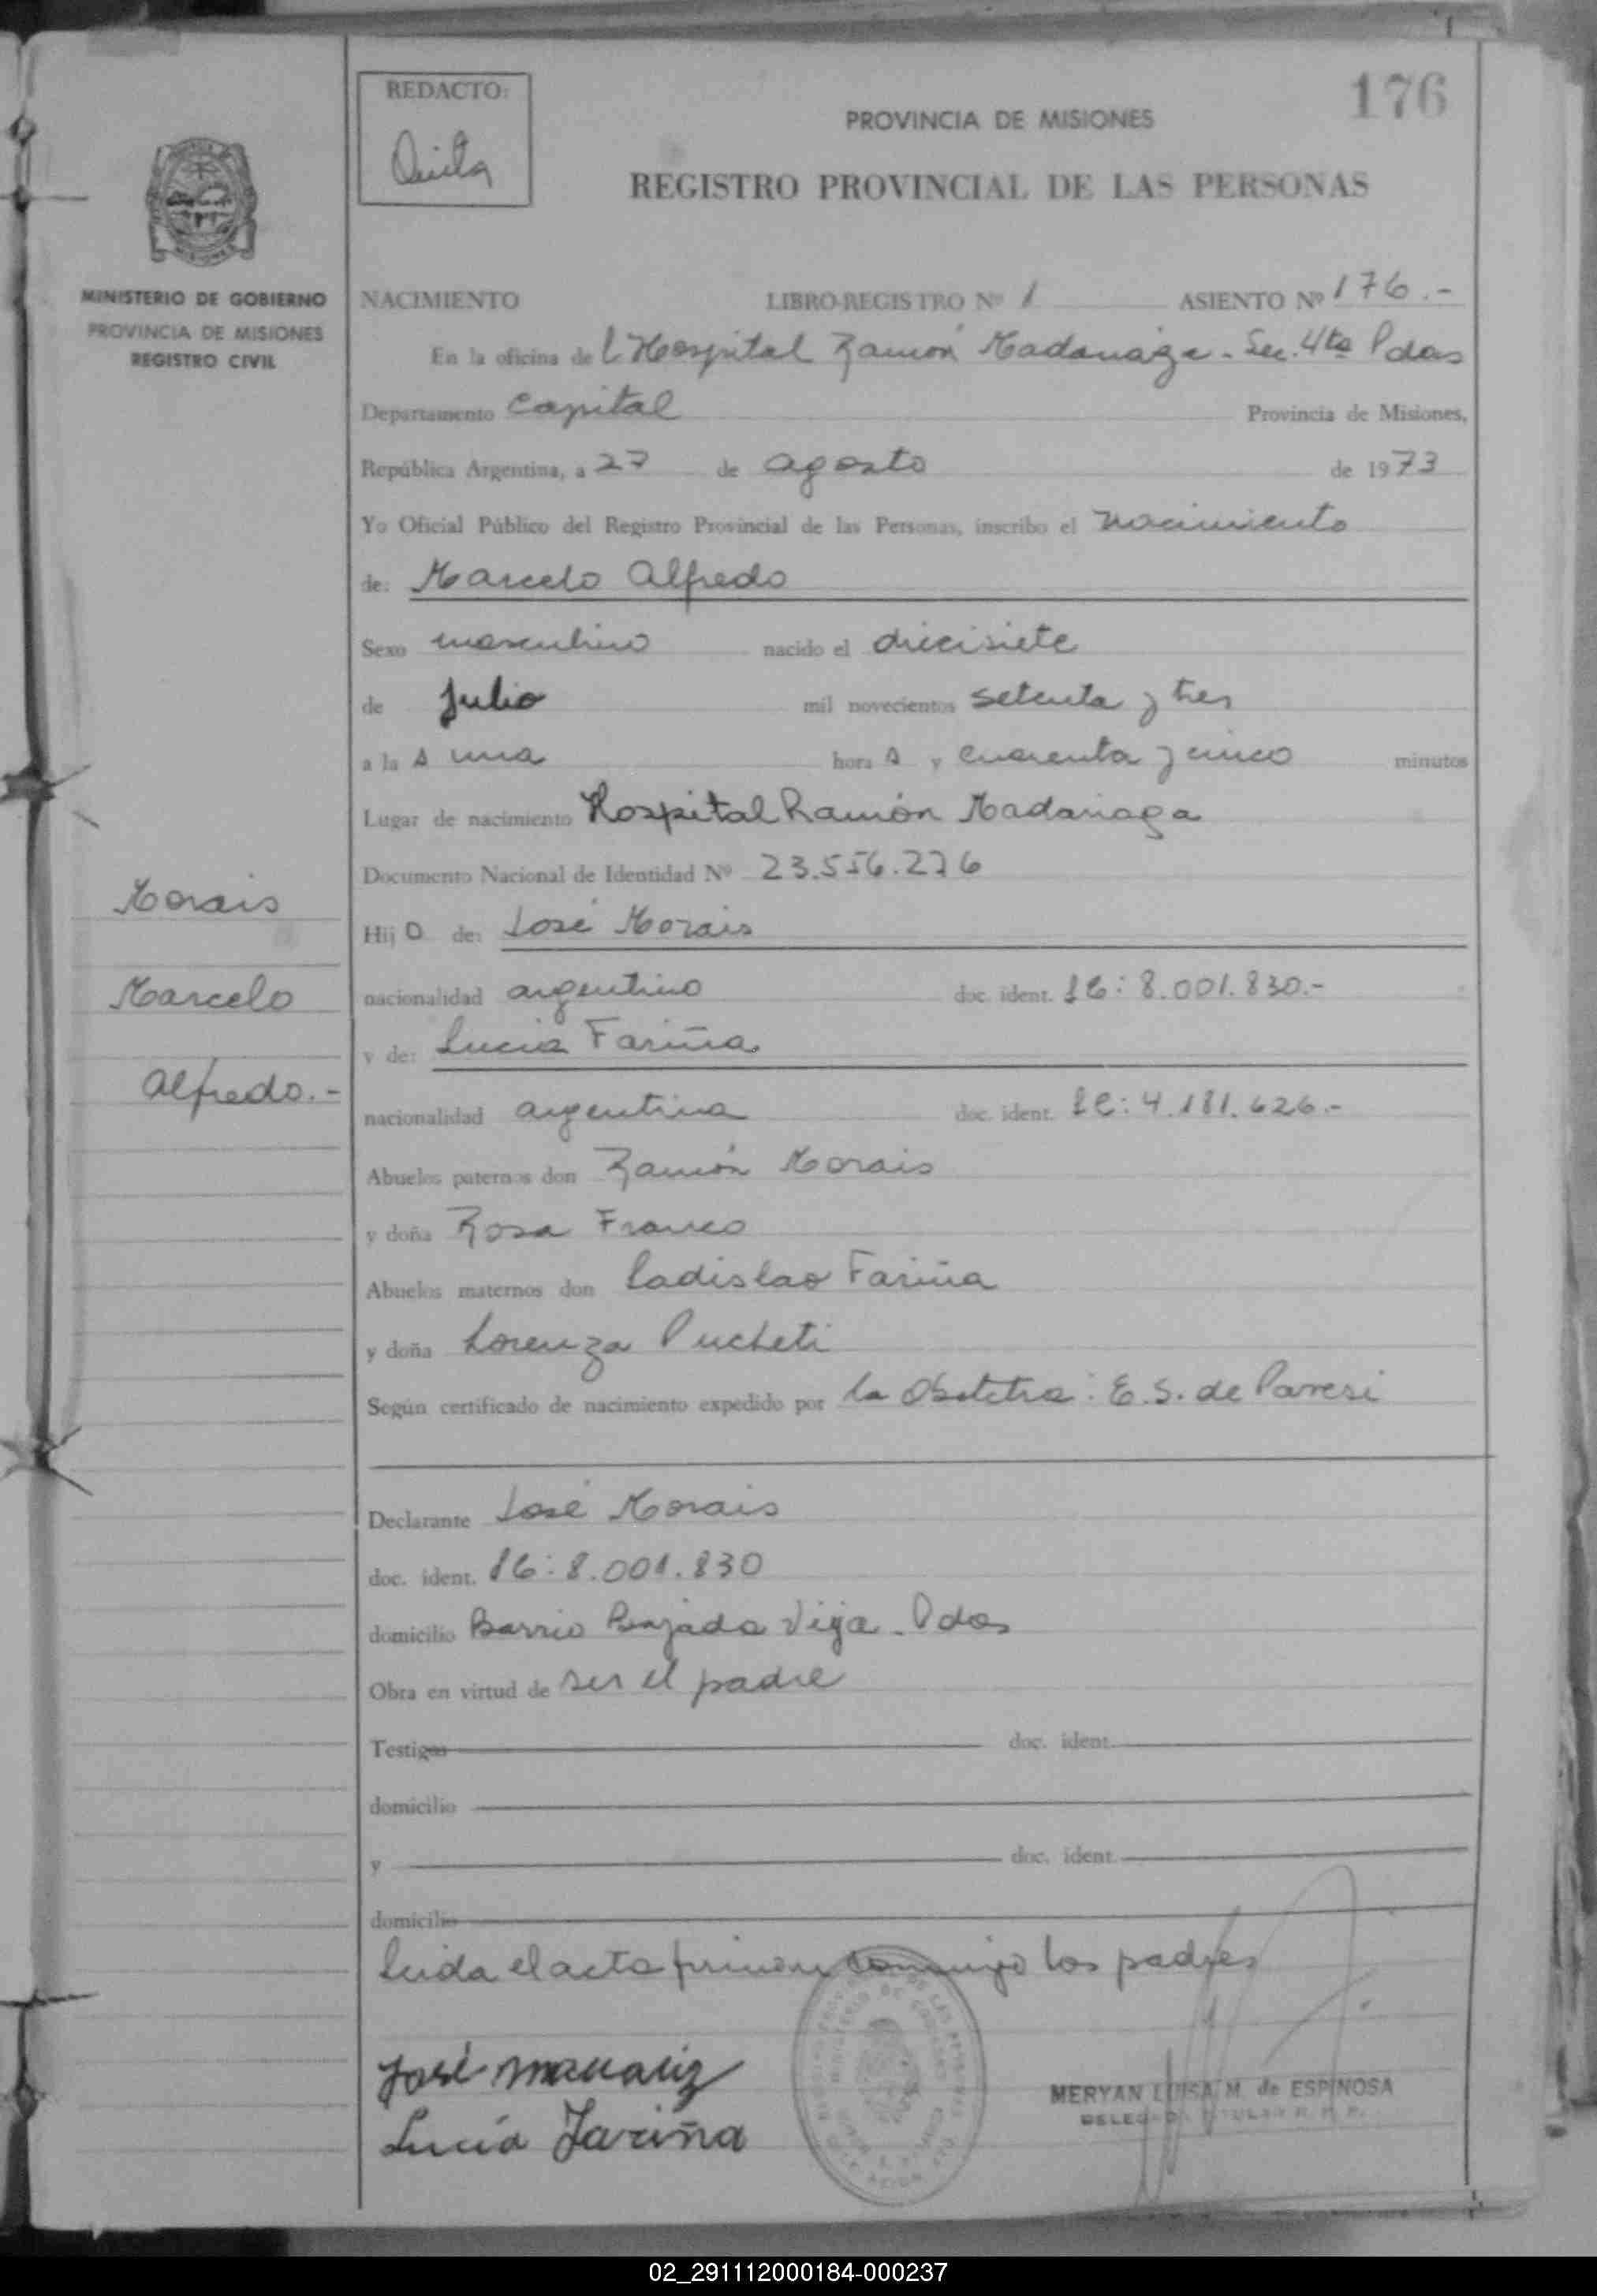 176
REDACTO:
Quita
PROVINCIA DE MISIONES
REGISTRO PROVINCIAL DE LAS PERSONAS
MINISTERIO DE GOBIERNO
PROVINCIA DE MISIONES
REGISTRO CIVIL
NACIMIENTO LIBRO-REGISTRO Nº 1 ASIENTO Nº 176.-
En la oficina de l Hospital Ramón Madariaga - Sec. 4ta Pdas
Departamento Capital Provincia de Misiones,
República Argentina, a 27 de agosto de 1973
Yo Oficial Público del Registro Provincial de las Personas, inscribo el nacimiento
de: Marcelo Alfredo
Sexo masculino nacido el diecisiete
de Julio mil novecientos setenta y tres
a la s una hora s y cuarenta y cinco minutos
Lugar de nacimiento Hospital Ramón Madariaga
Documento Nacional de Identidad Nº 23.556.276
Morais
Marcelo
Alfredo.-
Hij o de: José Morais
nacionalidad argentino doc. ident. LE: 8.001.830.-
y de: Lucia Fariña
nacionalidad argentina doc. ident. LC: 4.181.626.-
Abuelos paternos don Ramón Morais
y doña Rosa Franco
Abuelos maternos don Ladislao Fariña
y doña Lorenza Pucheti
Según certificado de nacimiento expedido por la Obstetra: E. S. de Parresi
Declarante José Morais
doc. ident. LE: 8.001.830
domicilio Barrio Bajada Vieja - Pdas
Obra en virtud de ser el padre
Testigos doc. ident.
domicilio
y doc. ident.
domicilio
Leida el acta firman conmigo los padres
José
Lucía Fariña
MERYAN LUISA M. de ESPINOSA
DELEGADA TITULAR R. P. P.
02_291112000184-000237